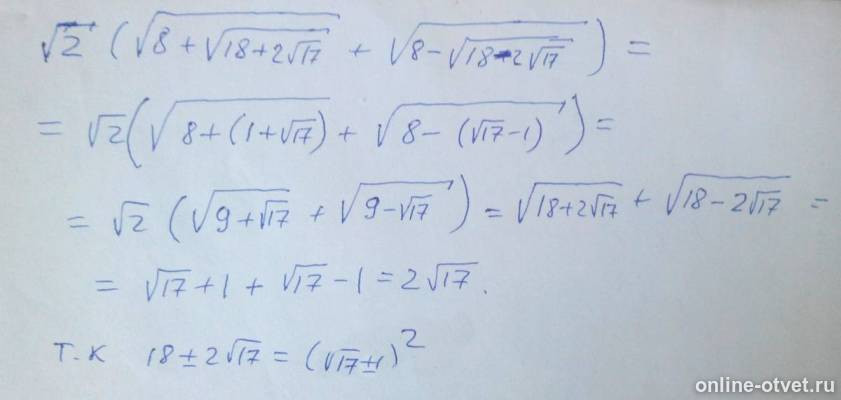 √2 (√(8+√(18+2√17)) + √(8-√(18-2√17))) =
= √2(√(8+(1+√17)) + √(8-(√17-1))) =
= √2 (√(9+√17) + √(9-√17)) = √(18+2√17) + √(18-2√17) =
= √17+1+ √17-1=2√17.
т.к 18±2√17=(√17±1)²
online-otvet.ru